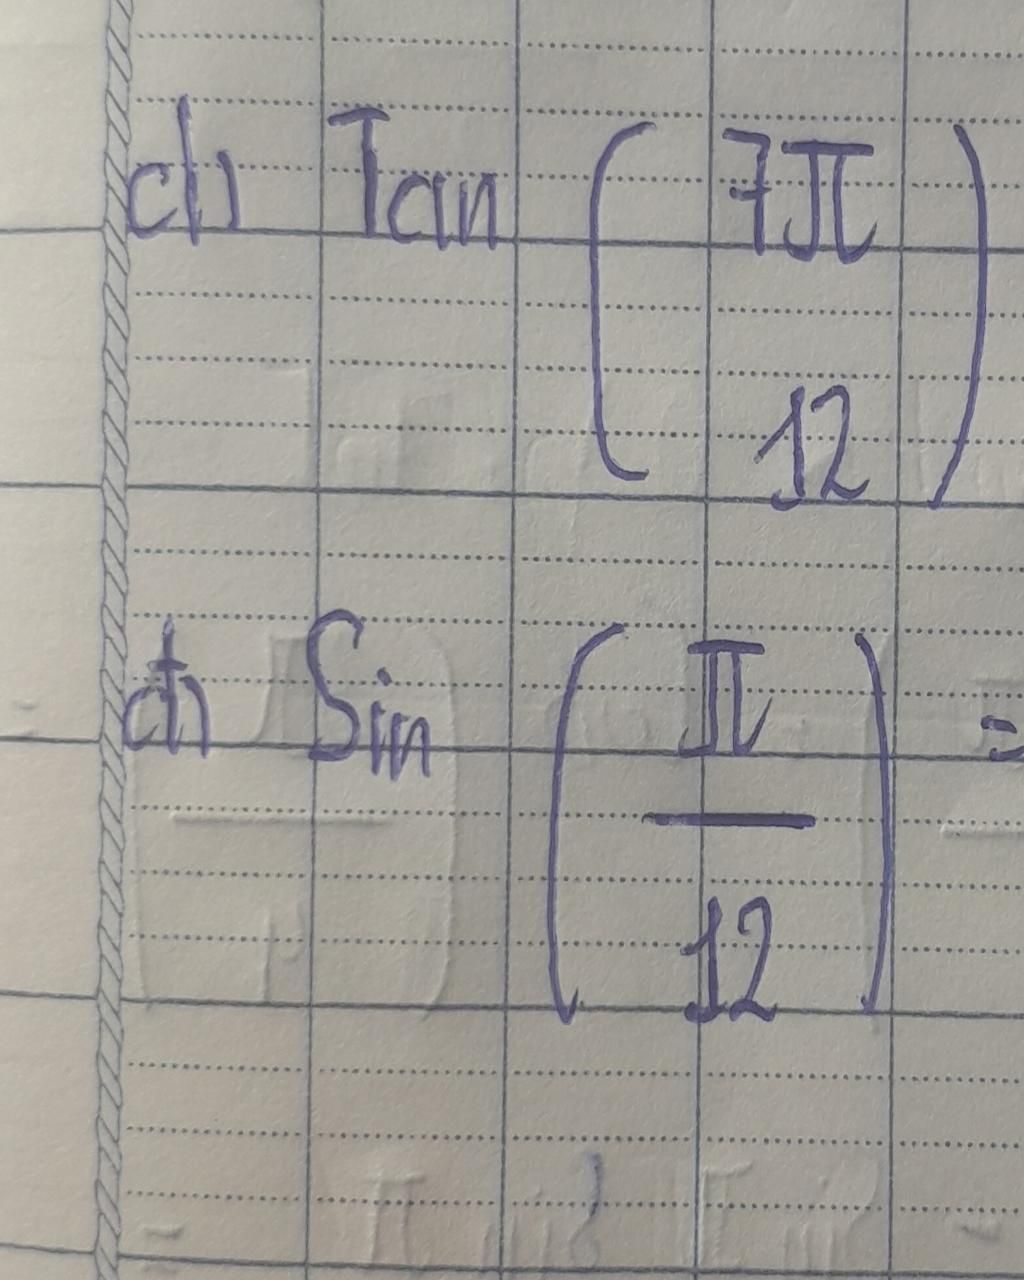 d) Tan ( 7π
12 )
đ) Sin ( π
12 ) =